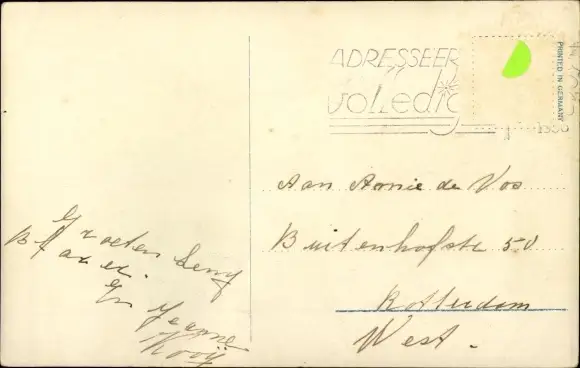 ADRESSEER
volledig
PRINTED IN GERMANY
Aan Annie de Vos
Buitenhofstr 50
Rotterdam
West.
Groeten
en Jeanne
Kooij